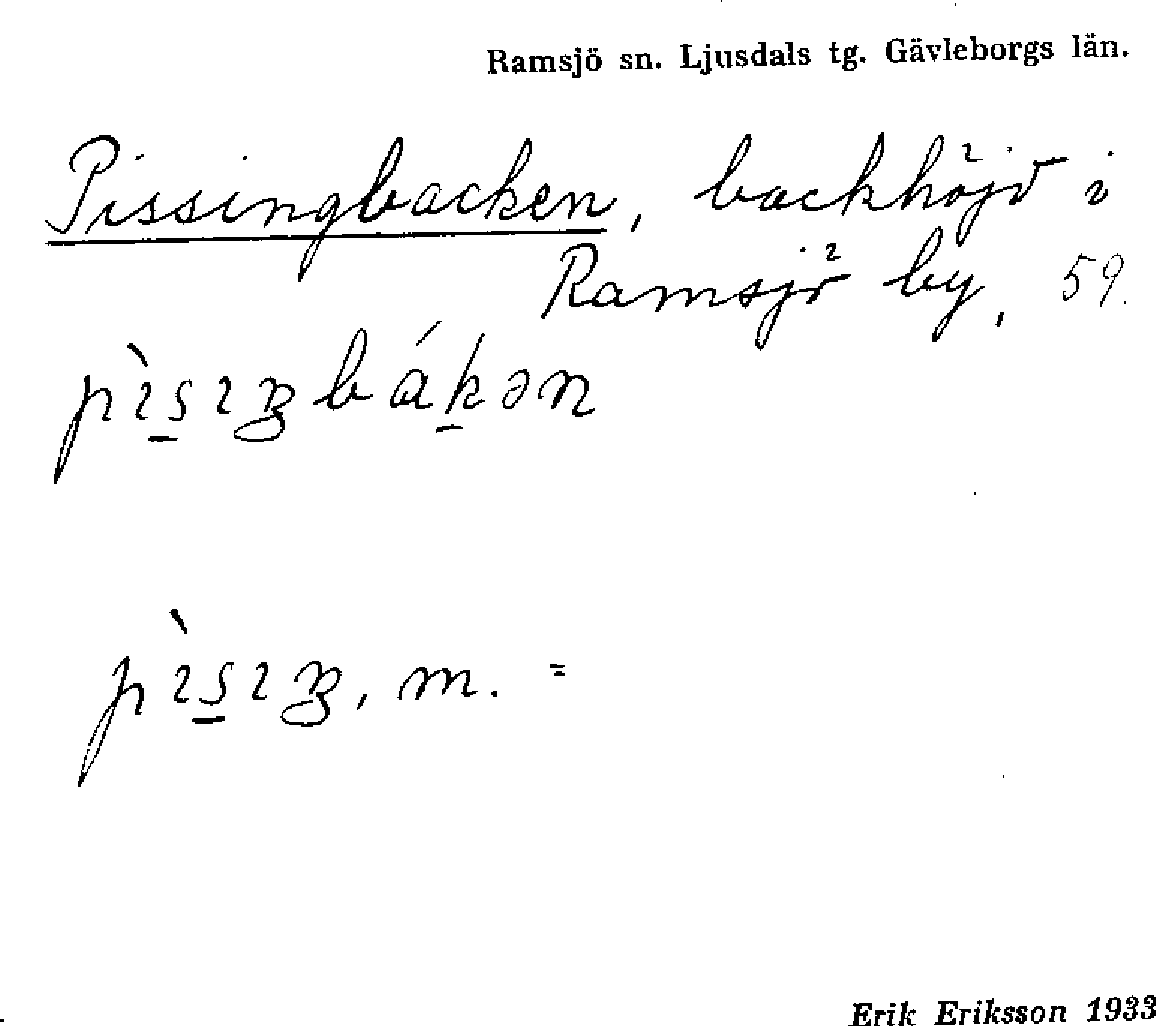 Ramsjö sn. Ljusdals tg. Gävleborgs län.
Pissingbacken, backhöjd i
Ramsjö by, 59.
pìsıŋbákən
pìsıŋ, m. =
Erik Eriksson 1933